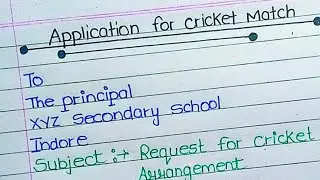 Application for cricket Match
To
The principal
XYZ Secondary School
Indore
Subject :→ Request for cricket
Arrangement